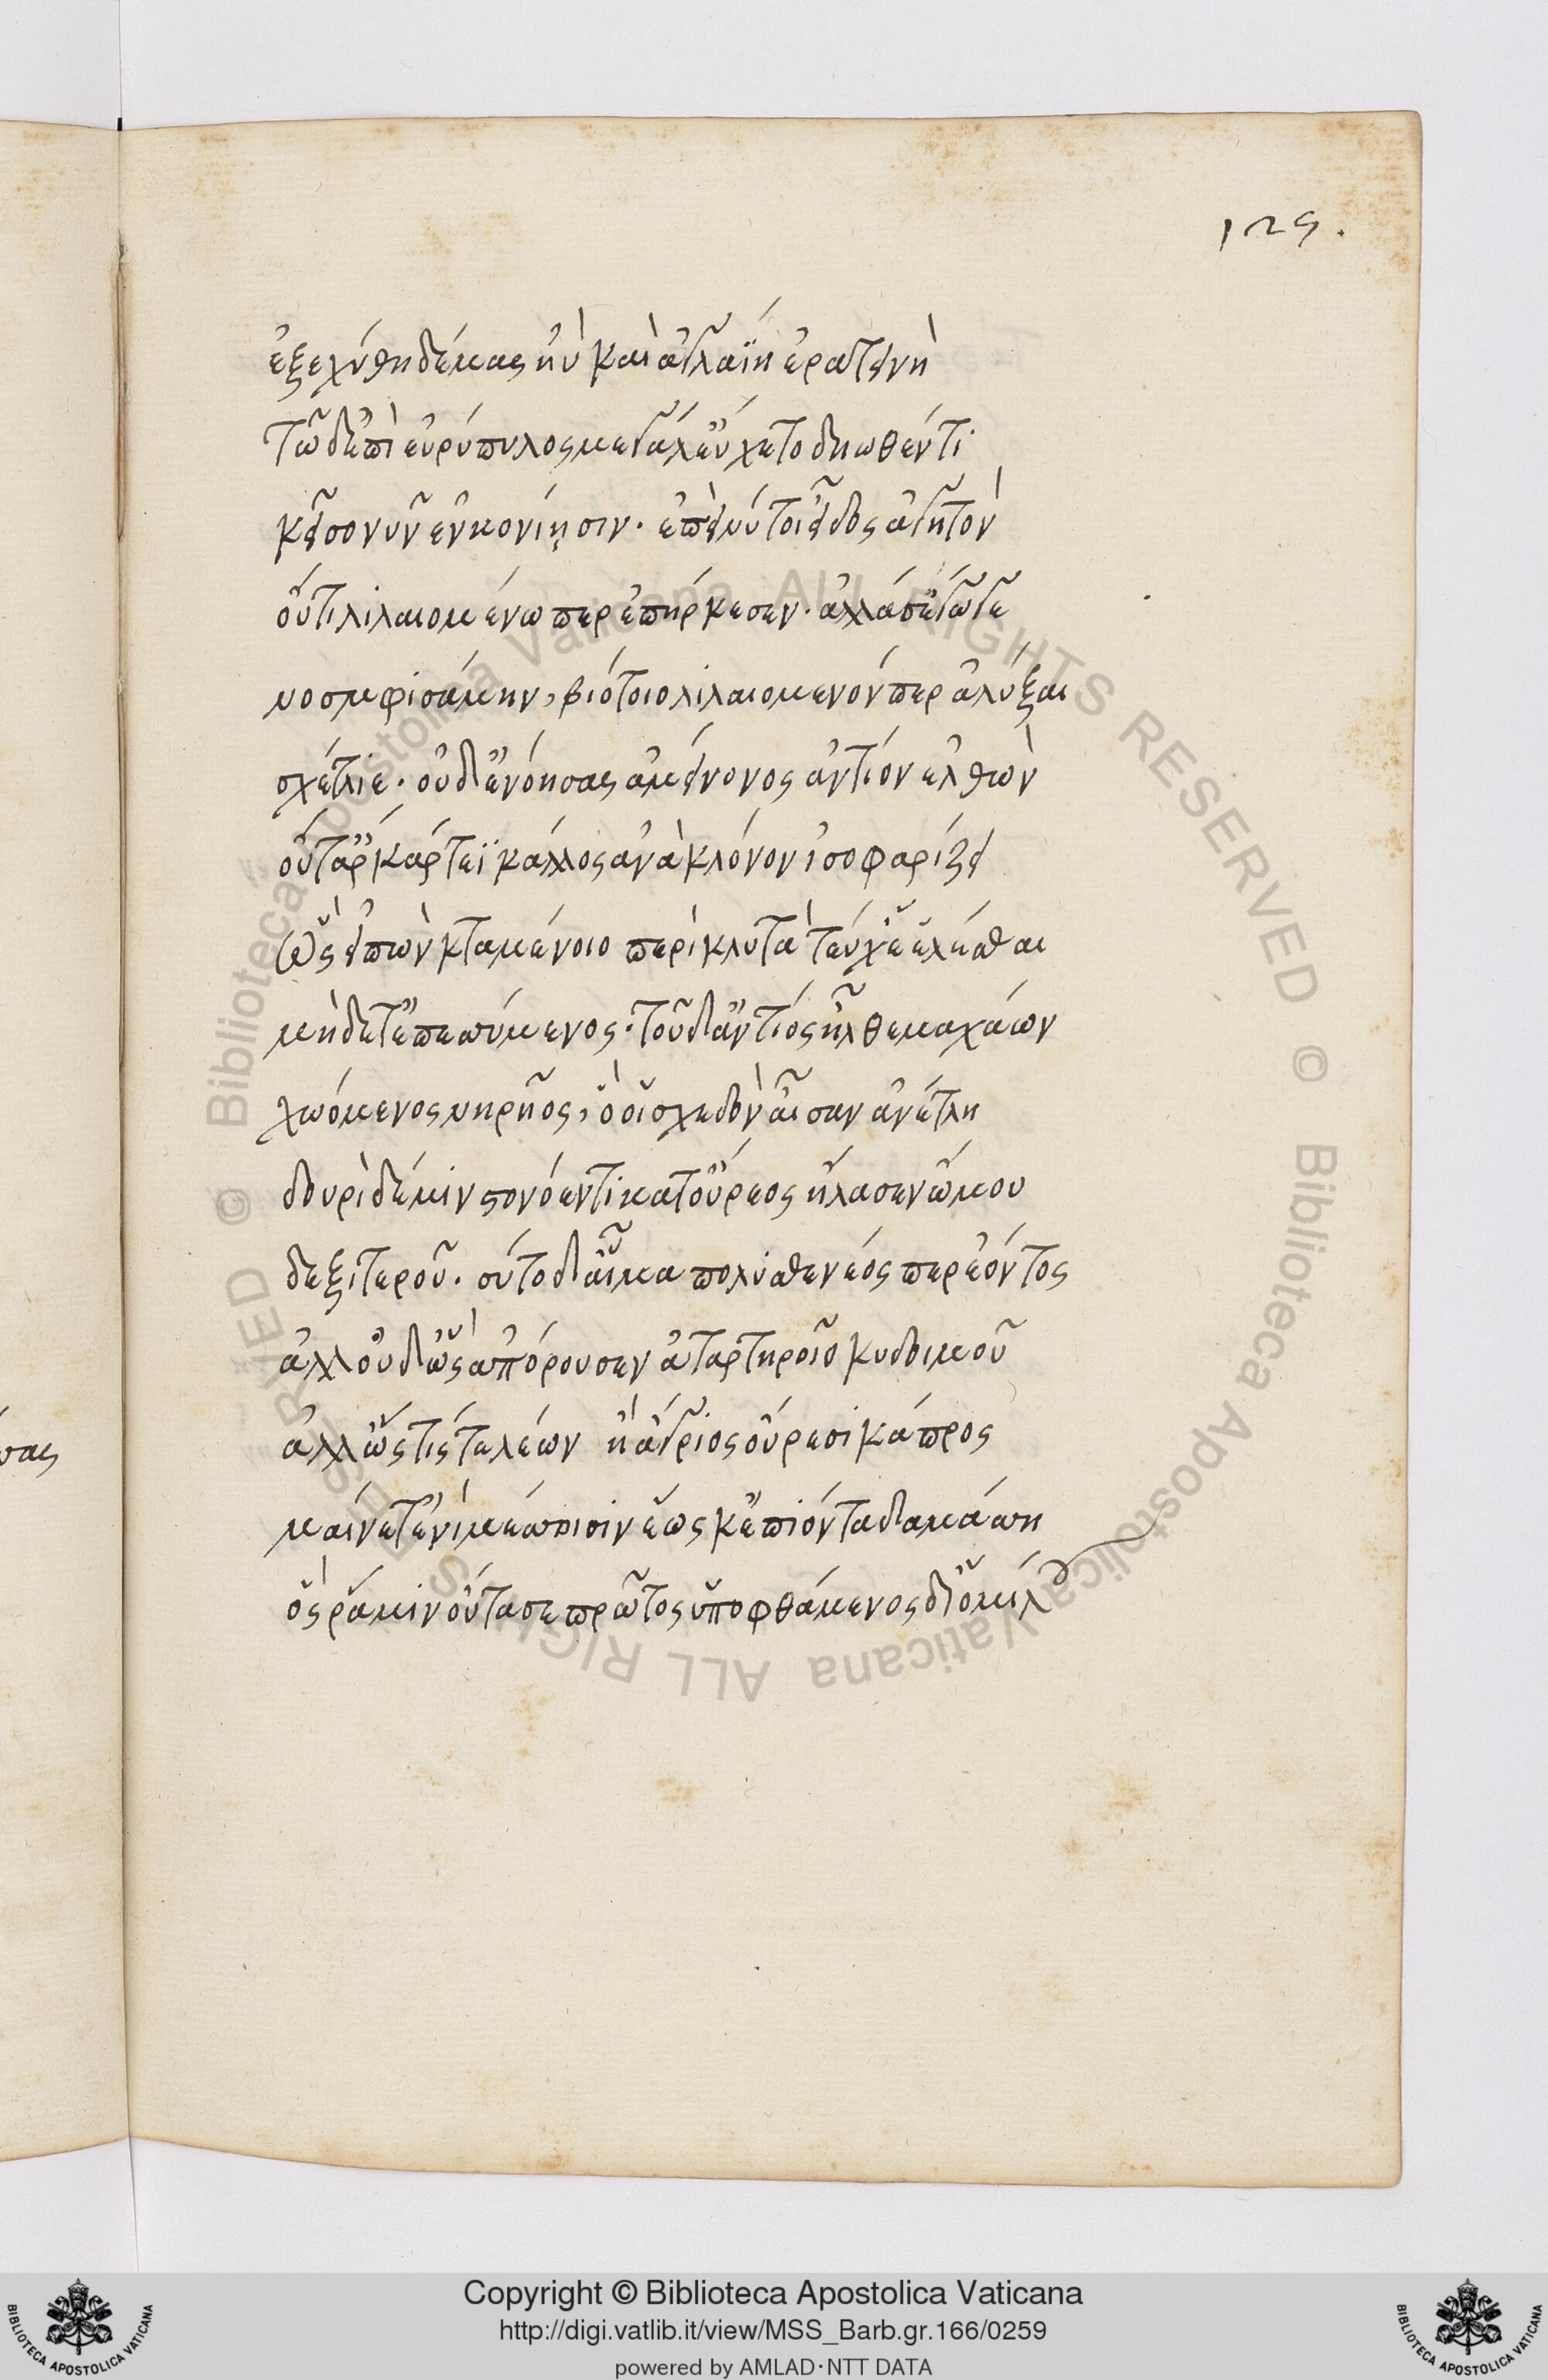 125.
ἐξεχύθη δέμας ἠὺ καὶ ἀγλαΐη ἐρατεινὴ
τῶ δ' ἐπὶ εὐρύπυλος μεγάλ' εὔχετο δηωθέντι
κεῖσο νυν ἐν κονίῃσιν. ἐπεὶ νύ τοι εἶδος ἀγητὸν
οὔτι λιλαιομένω περ ἐπήρκεσεν. ἀλλά σ' ἔγωγε
νοσφισάμην, βιότοιο λιλαιομενόν περ ἀλύξαι
σχέτλιε. οὐδ' ἐνόησας ἀμείνονος ἀντίον ἐλθὼν
οὔτ' ἄρ κάρτεϊ κάλλος ἀνὰ κλόνον ἰσοφαρίζει
Ὣς εἰπὼν κταμένοιο περὶκλυτὰ τεύχε' ἑλέσθαι
μήδετ' ἐπεσσύμενος. τοῦ δ' ἀντίος ἦλθε μαχάων
χωόμενος νηρῆος, ὅ οἱ σχεδὸν αἶσαν ἀνέτλη
δουρὶ δέ μιν στονόεντι κατ' οὔρεος ἤλασεν ὤμου
δεξιτεροῦ. σύτο δ' αἷμα πολυσθενέος περ ἐόντος
ἀλλ' οὐδ' ὣς ἀπόρουσεν ἀταρτηροῖο κυδοιμοῦ
ἀλλ' ὥς τίς τε λέων ἢ ἄγριος οὔρεσι κάπρος
μαίνετ' ἐνὶ μέσσοισιν ἕως κ' ἐπιόντα δαμάσση
ὅς ῥά μιν οὔτασε πρῶτος ὑποφθάμενος δι' ὁμίλου
σας
Copyright © Biblioteca Apostolica Vaticana
http://digi.vatlib.it/view/MSS_Barb.gr.166/0259
powered by AMLAD·NTT DATA
BIBLIOTECA APOSTOLICA VATICANA
BIBLIOTECA APOSTOLICA VATICANA
© Biblioteca Apostolica Vaticana ALL RIGHTS RESERVED © Biblioteca Apostolica Vaticana ALL RIGHTS RESERVED